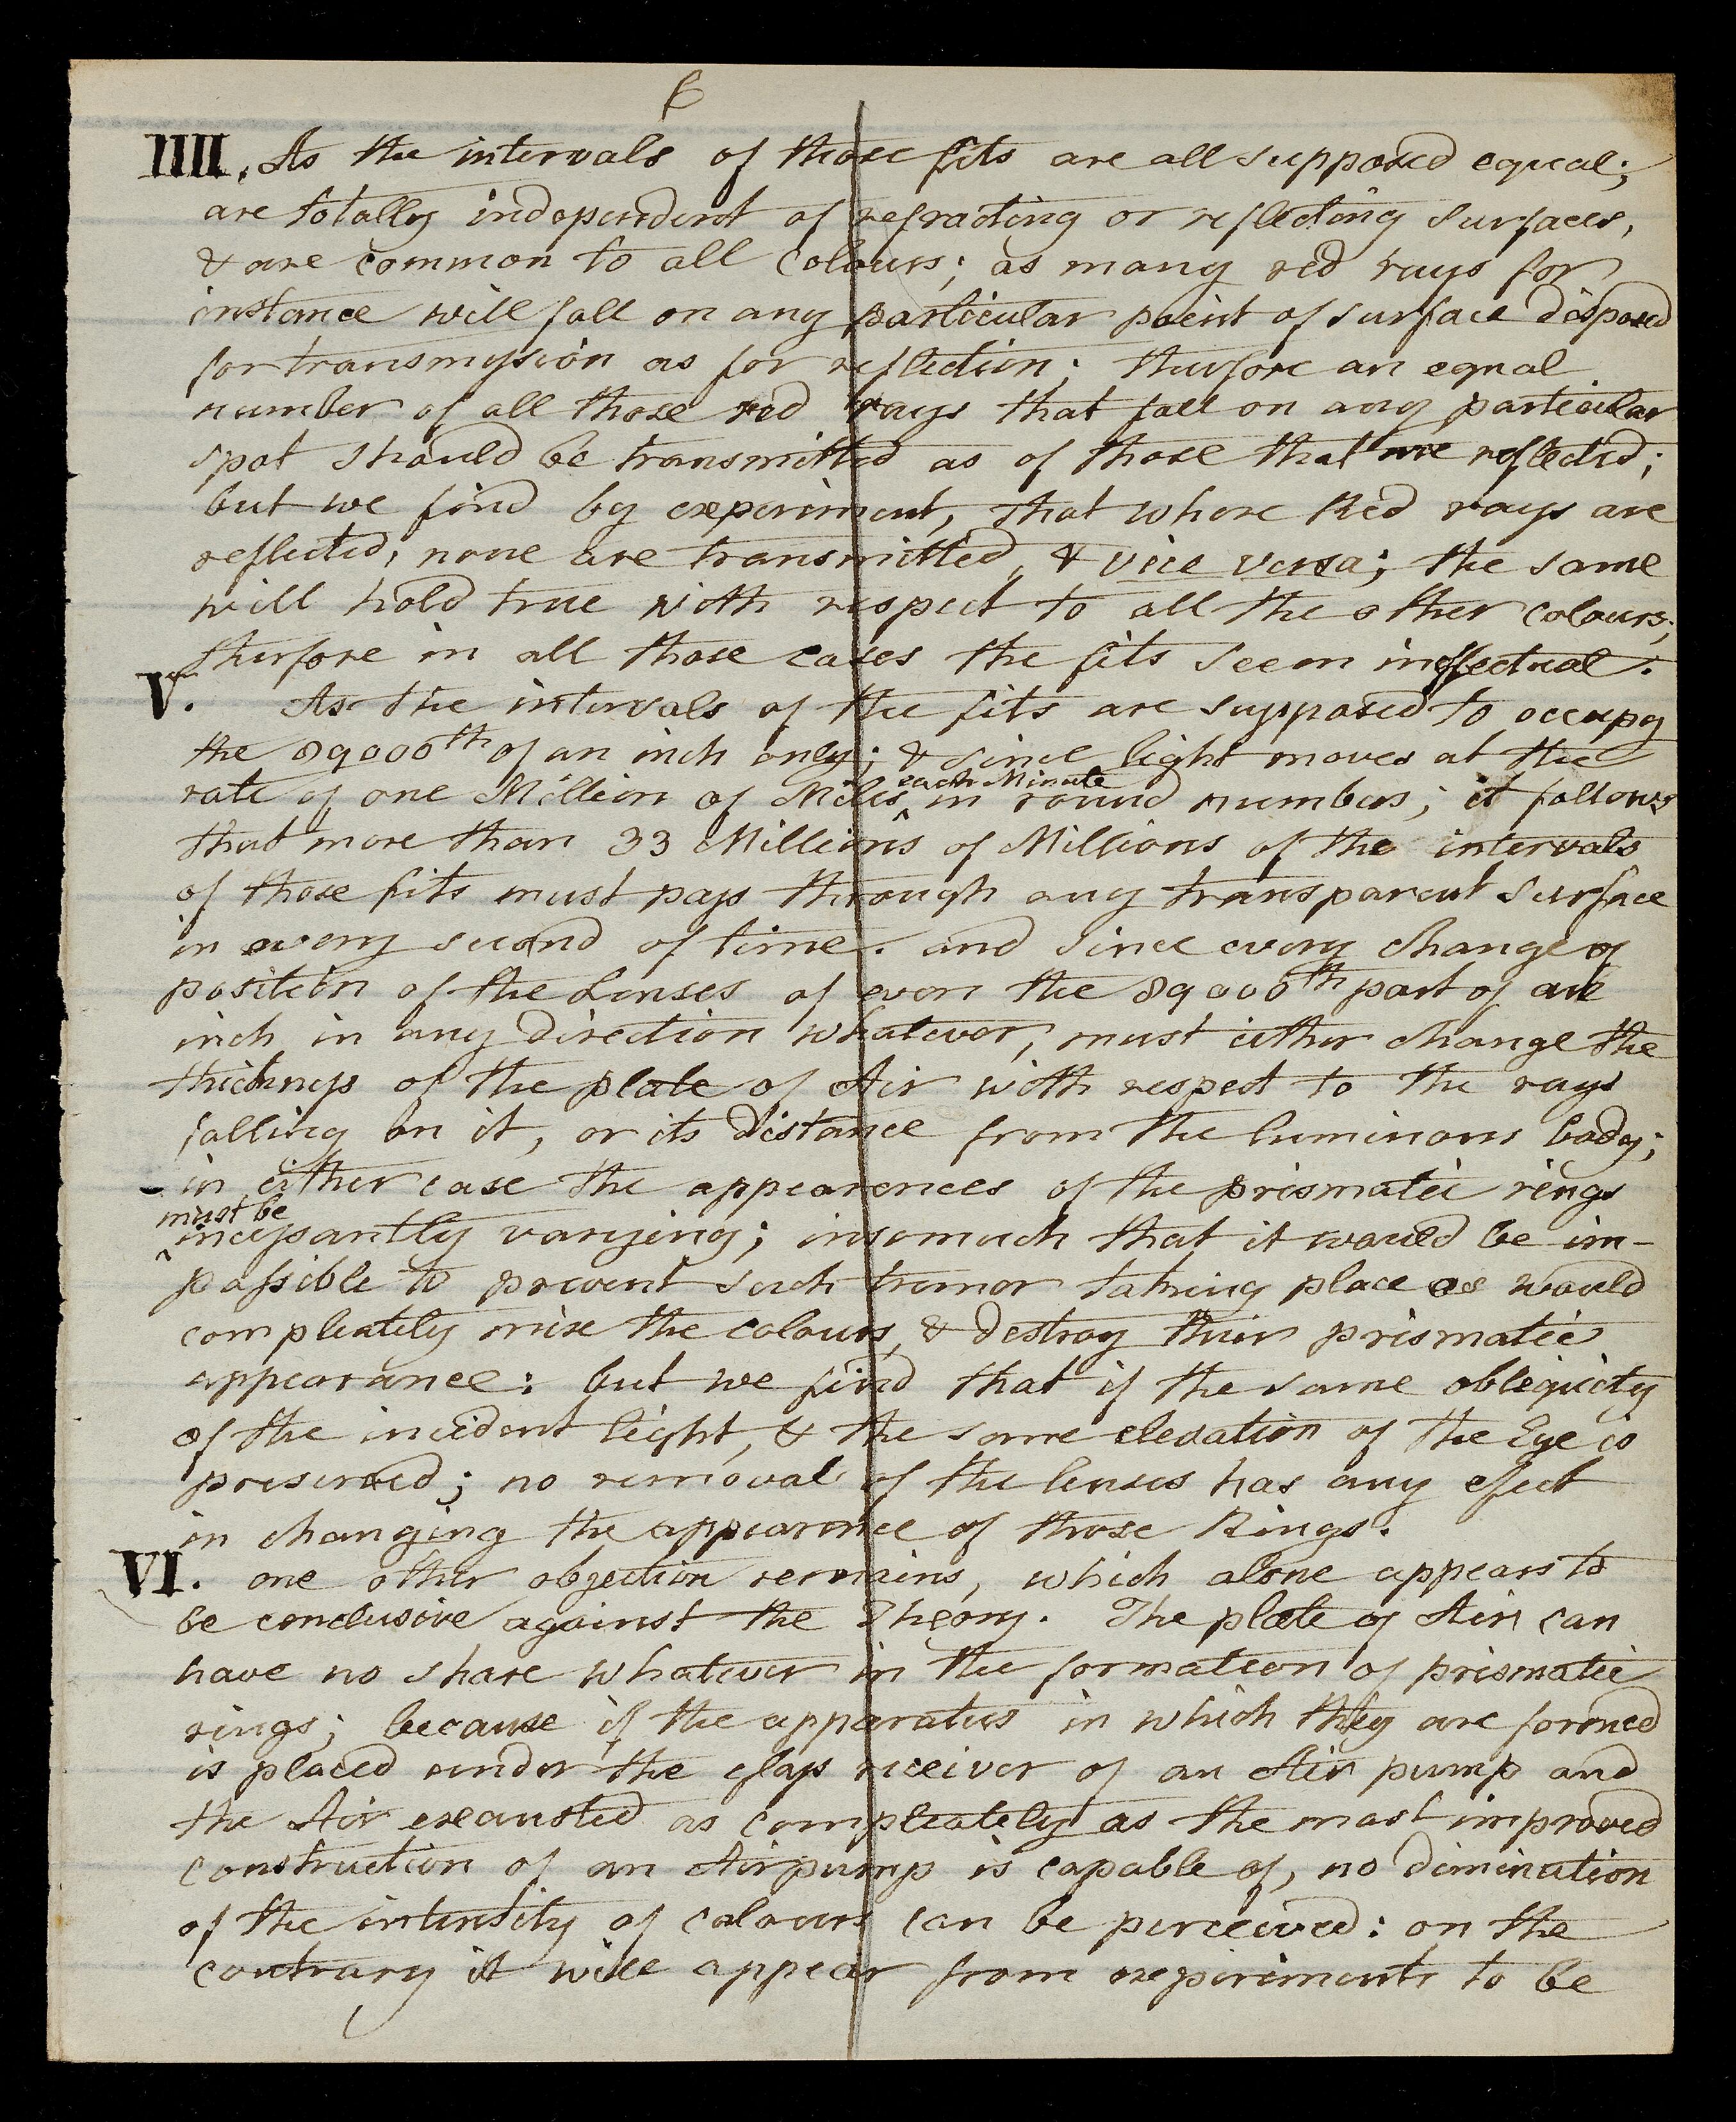 6
IIII. As the intervals of those fits are all supposed equal;
are totally independent of refracting or reflecting surfaces,
& are common to all colours; as many red rays for
instance will fall on any particular point of surface disposed
for transmission as for reflection; therfore an equal
number of all those red rays that fall on any particular
spot should be transmitted as of those that are reflected;
but we find by experiment, that where Red rays are
reflected, none are transmitted, & vice versa; the same
will hold true with respect to all the other colours;
therfore in all those cases the fits seem ineffectual.
V. As the intervals of the fits are supposed to occupy
the 89000th of an inch only; & since light moves at the
each Minute
rate of one Million of Miles ^ in round numbers; it follows
that more than 33 Millions of Millions of the intervals
of those fits must pass through any transparent surface
in every second of time. and since every change of
position of the Lenses of even the 89000th part of an
inch in any direction whatever, must either change the
thickness of the plate of Air with respect to the rays
falling on it, or its distance from the luminous body;
in either case the appearences of the prismatic rings
must be
^ incessantly varying; insomuch that it would be im-
possible to prevent such tremor taking place as would
compleately mix the colours, & destroy their prismatic
appearance: but we find that if the same obliquity
of the incident light, & the same elevation of the Eye is
preserved; no removal of the lenses has any efect
in changing the appearence of those Rings.
VI. one other objection remains, which alone appears to
be conclusive against the Theory. The plate of Air can
have no share whatever in the formation of prismatic
rings; because if the apparatus in which they are formed
is placed under the glass receiver of an Air pump and
the Air exausted as compleately as the most improved
construction of an Airpump is capable of, no diminution
of the intensity of colours can be perceived: on the
contrary it will appear from experiments to be